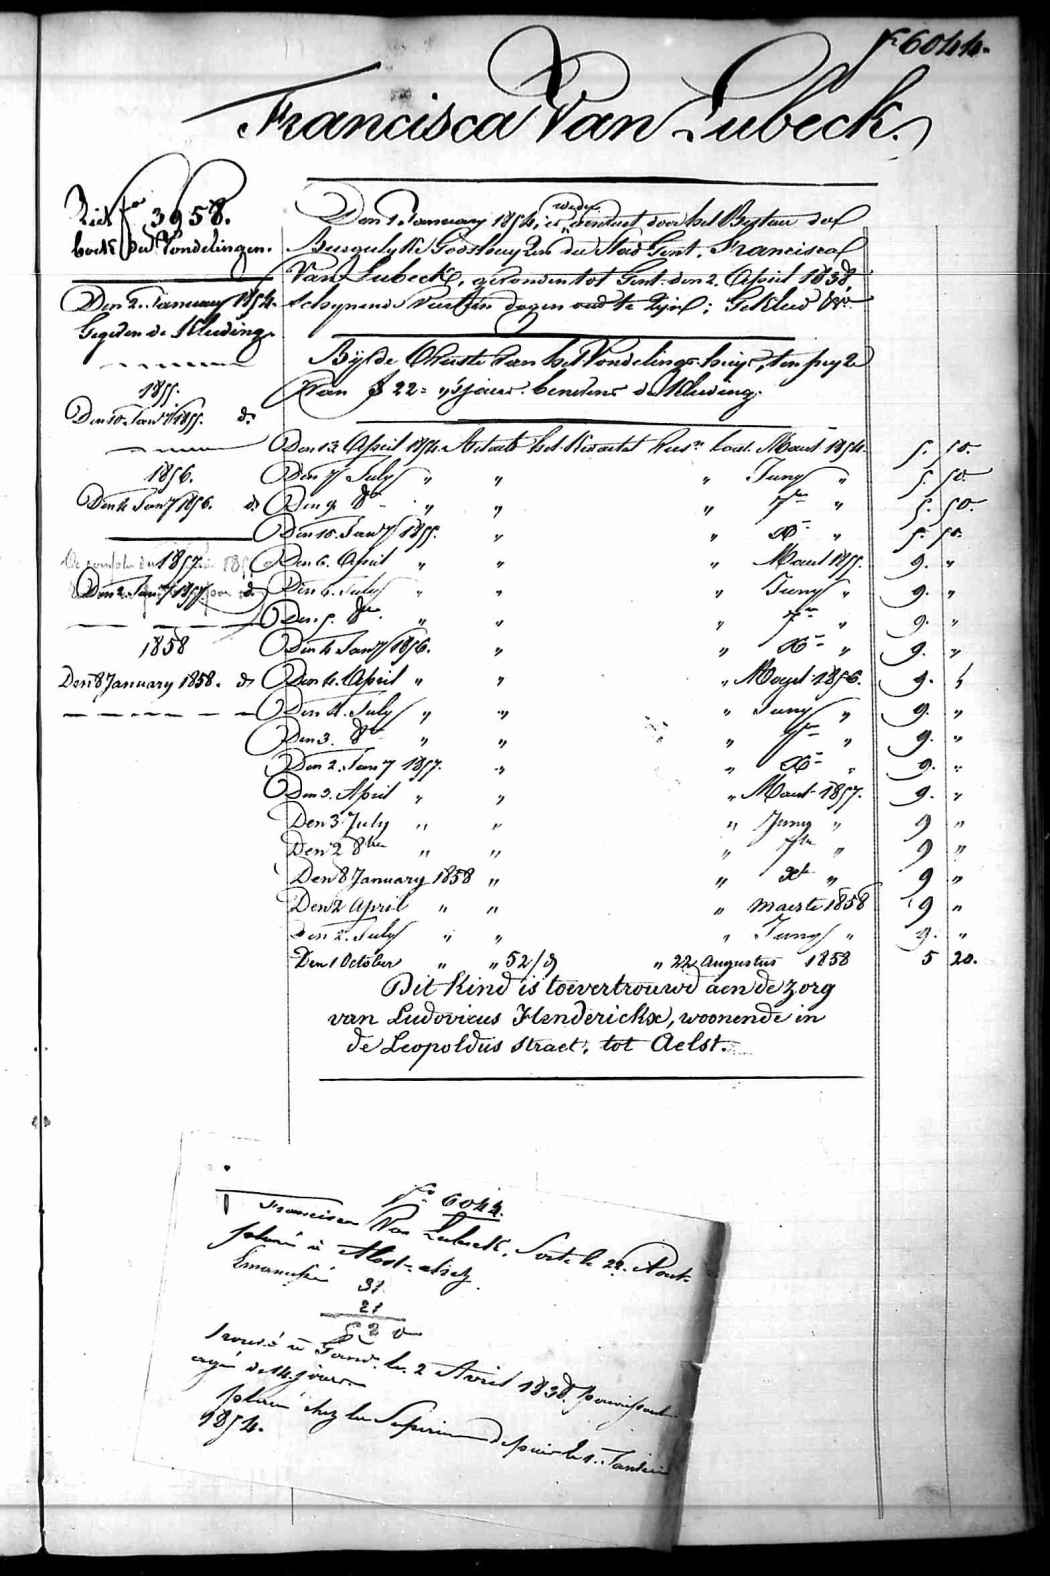 f° 6044.
Francisca Van Lubeck.
Ziet f° 3958.
boek der Vondelingen.
Den 2. January 1854.
Gegeven de Kleeding.
1855.
Den 10. Jany 1855. do
1856.
Den 4. Jany 1856. do
1857.
Den 2. Jany 1857. do
1858
Den 8 January 1858. do
Den 1. January 1854, is weder besteed door het Bestuur der
Burgerlyke Godshuyzen der Stad Gent, Francisca
Van Lubeck, gevonden tot Gent den 2. April 1838,
schynende veertien dagen oud te zyn; Gekleed
By de Overste van het Vondelings huys, ten pryze
van f 22 = 's jaers benevens de Kleeding.
Den 13. April 1854. Maert 1854. 5. 50.
Den 7. July " " " Juny " 5. 50.
Den 9. 8br " " " 7bre " 5. 50.
Den 10. Jany 1855. " " Xbre " 5. 50.
Den 6. April " " " Maert 1855. 9. "
Den 6. July " " " Juny " 9. "
Den 5. 8br " " " 7bre " 9. "
Den 4 Jany 1856. " " Xbre " 9. "
Den 4. April " " " Maert 1856. 9. "
Den 4. July " " " Juny " 9. "
Den 3. 8br " " " 7bre " 9. "
Den 2. Jany 1857. " " Xbre " 9. "
Den 3. April " " " Maert 1857. 9. "
Den 3 July " " " Juny " 9 "
Den 2 8ber " " " 7bre " 9 "
Den 8 January 1858 " " Xbr " 9 "
Den 2 April " " " maerte 1858 9 "
Den 2. July " " " Juny " 9. "
Den 1 October " " 52/d " 22 augustus 1858 5 20.
Dit Kind is toevertrouwd aen de zorg
van Ludovicus Henderickx, woonende in
de Leopoldus straet, tot Aelst.
f° 6044.
Francisca Van Lubeck, Sortie le 22. Aout
placée à Alost chez
Emancipée
31
21
52
trouvé à Gand le 2 Avril 1838, paraissant
agé de 14 jours
placée chez la Supérieure depuis le 1. Janvier
1854.